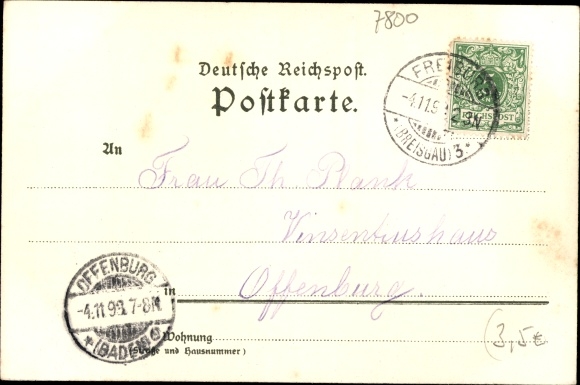 7800
Deutsche Reichspost.
Postkarte.
FREIBURG
-4.11.9 2-3N
*(BREISGAU) 3.*
REICHSPOST
An
Frau Th Rank
Vinsentiushaus
in
Offenburg.
OFFENBURG
-4.11.99.7-8N
*(BADEN)*
Wohnung
(Straße und Hausnummer)
(3,5€